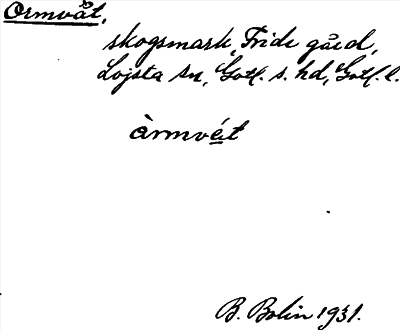 Ormvåt,
skogsmark, Fride gård,
Lojsta sn, Gotl. s. hd, Gotl. l.
àrmvét
B. Bolin 1931.